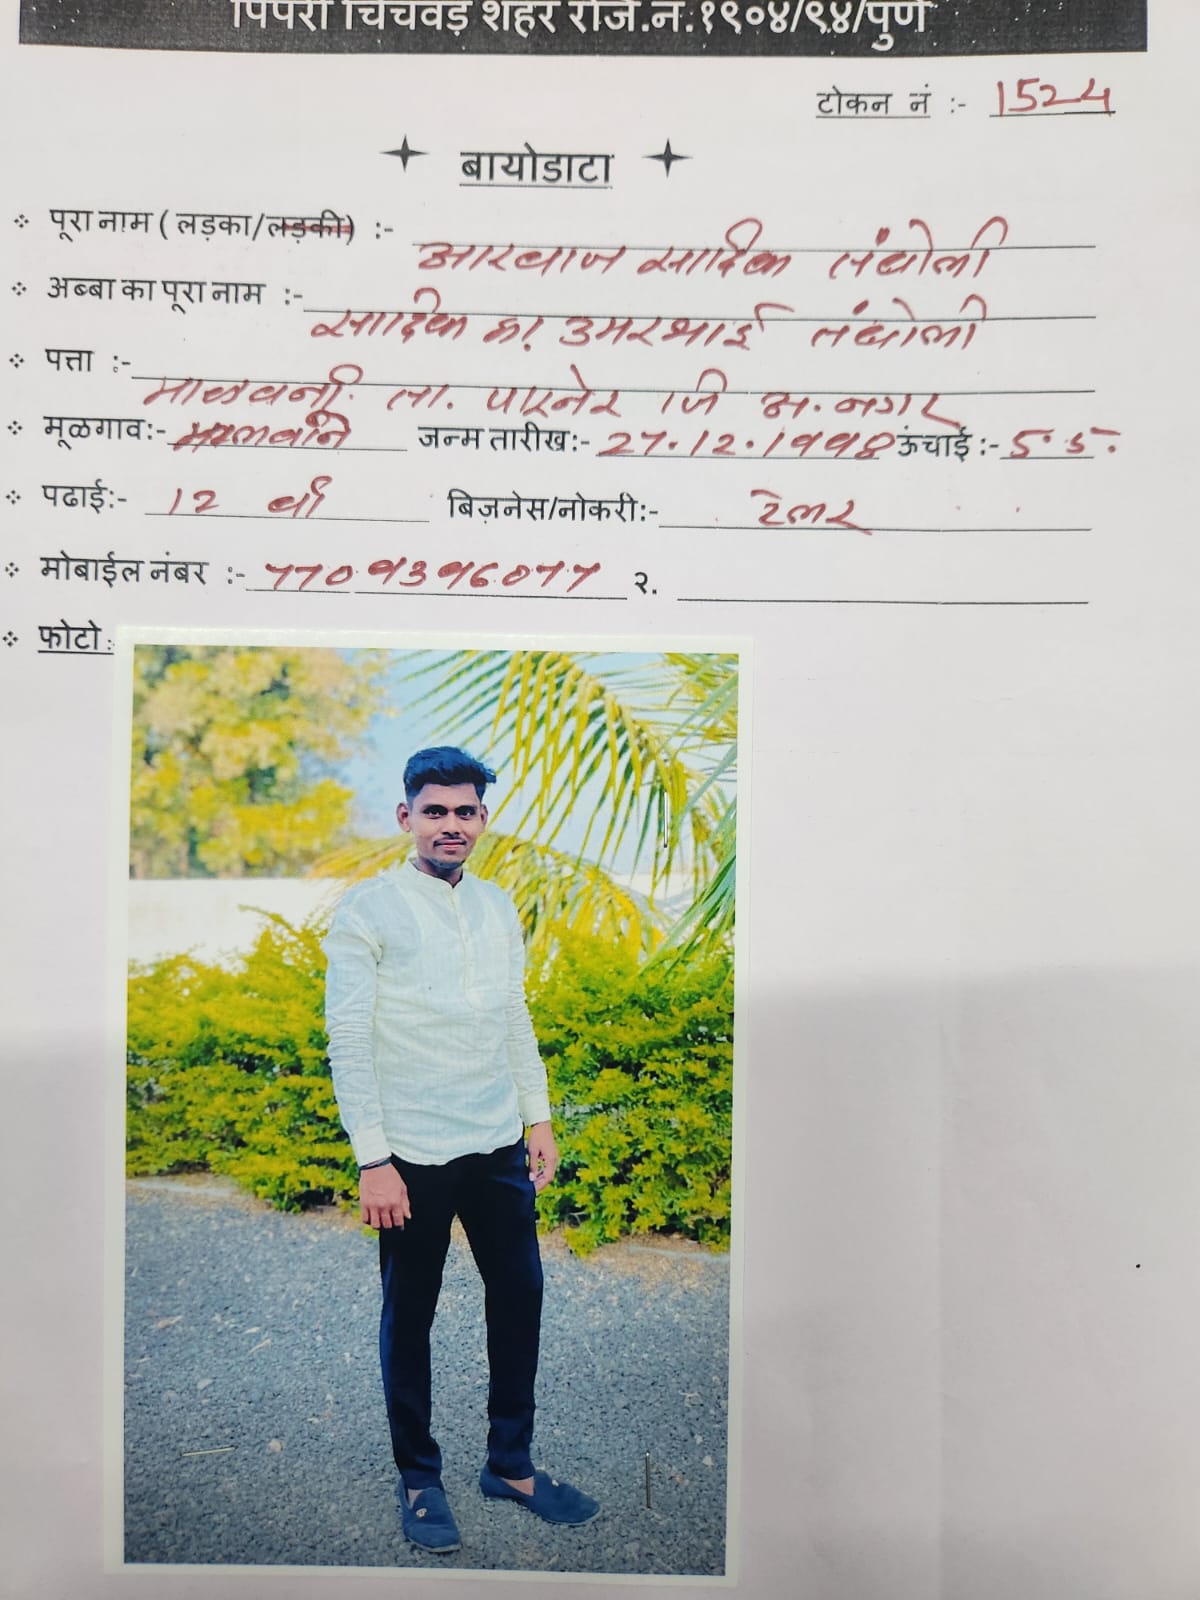 पिंपरी चिंचवड शहर रजि.नं.१९०४/९४/पुणे
टोकन नं :- 1524
बायोडाटा
पूरा नाम ( लड़का/लड़की) :- आरबाज सादिक तंबोली
अब्बा का पूरा नाम :- सादिक का. उमरभाई तंबोली
पत्ता :- माळवनी. ता. पारनेर जि अ. नगर
मूळगाव:- माळवनि जन्म तारीख:- 27.12.1998 ऊंचाई :- 5.5.
पढाई:- 12 वी बिज़नेस/नोकरी:- टेलर
मोबाईल नंबर :- 7709396077 २.
फोटो :